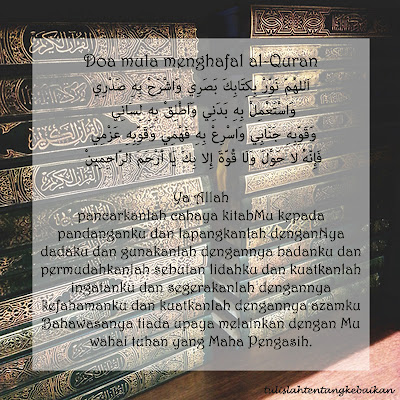 Doa mula menghafal al-Quran
اَللهُمَّ نَوِّرْ بِكِتَابِكَ بَصَرِي وَاشْرَحْ بِهِ صَدْرِي
وَاسْتَعْمِلْ بِهِ بَدَنِي وَاَطْلِقْ بِهِ لِسَانِي
وَقَوِّبِهِ جَنَابِي وَاسْرِحْ بِهِ فَهْمِي وَقَوِّبِهِ عَزْمِي
فَإِنَّهُ لاَ حَوْلَ وَلَا قُوَّةَ إِلَّا بِكَ يَا اَرْحَمَ الرَّاحِمِيْنَ
Ya Allah
pancarkanlah cahaya kitabMu kepada
pandanganku dan lapangkanlah denganNya
dadaku dan gunakanlah dengannya badanku dan
permudahkanlah sebutan lidahku dan kuatkanlah
ingatanku dan segerakanlah dengannya
kefahamanku dan kuatkanlah dengannya azamku
Bahawasanya tiada upaya melainkan dengan Mu
wahai tuhan yang Maha Pengasih.
tulislahtentangkebaikan